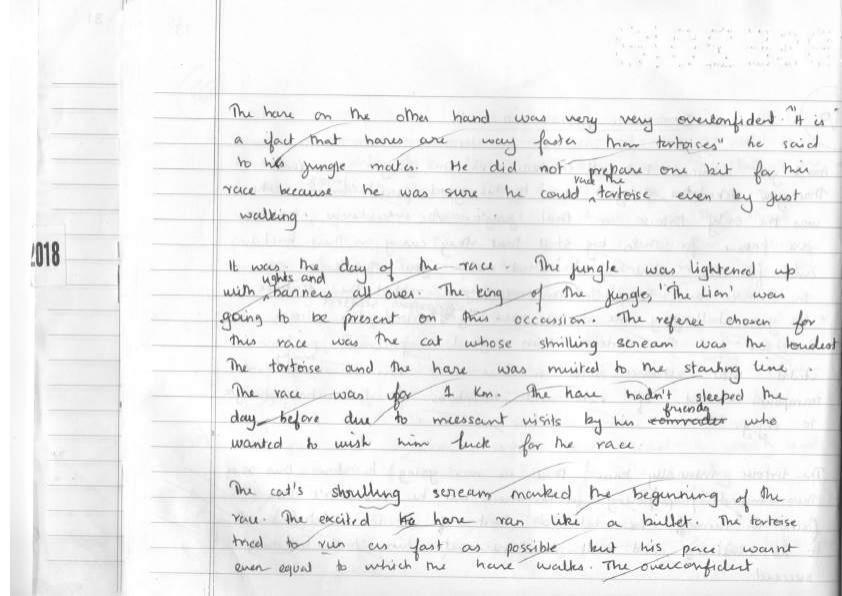 The hare on the other hand was very very overconfident. "It is
a fact that hares are way faster than tortoises" he said
to his jungle mates. He did not prepare one bit for this
race because he was sure he could race the tortoise even by just
walking.
It was the day of the race. The jungle was lightened up
with lights and banners all over. The king of the jungle, 'The Lion' was
going to be present on this occassion. The referee chosen for
this race was the cat whose shrilling scream was the loudest
The tortoise and the hare was invited to the starting line.
The race was for 1 Km. The hare hadn't sleeped the
day before due to incessant visits by his friends who
wanted to wish him luck for the race.
The cat's shrulling scream marked the beginning of the
race. The excited hare ran like a bullet. The tortoise
tried to run as fast as possible but his pace wasnt
even equal to which the hare walks. The overconfident
2018